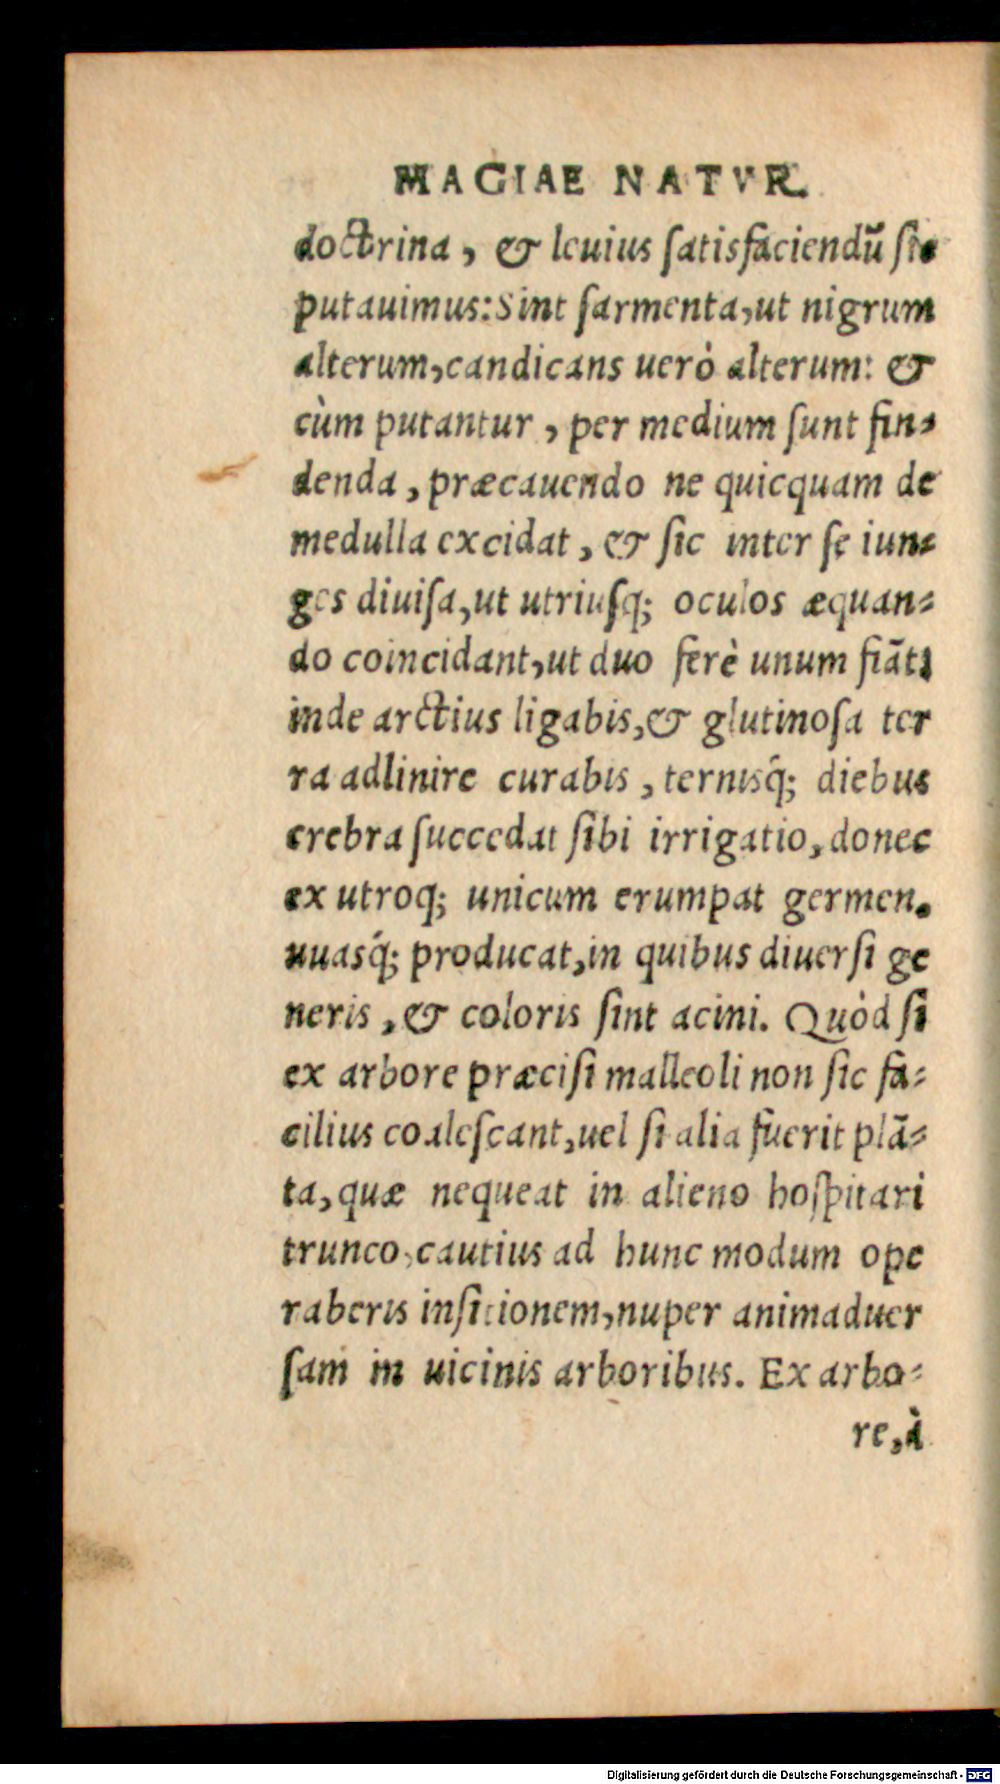 MAGIAE NATVR.
doctrina, & leuius ſatisfaciendũ ſic
putauimus: Sint ſarmenta, ut nigrum
alterum, candicans uerò alterum: &
cùm putantur, per medium ſunt fin-
denda, præcauendo ne quicquam de
medulla excidat, & ſic inter ſe iun-
ges diuiſa, ut utriuſq; oculos æquan-
do coincidant, ut duo ferè unum fiãt:
inde arctius ligabis, & glutinoſa ter
ra adlinire curabis, ternisq́; diebus
crebra ſuccedat ſibi irrigatio, donec
ex utroq; unicum erumpat germen.
uuasq́; producat, in quibus diuerſi ge
neris, & coloris ſint acini. Quòd ſi
ex arbore præciſi malleoli non ſic fa-
cilius coaleſcant, uel ſi alia fuerit plã-
ta, quæ nequeat in alieno hoſpitari
trunco, cautius ad hunc modum ope
raberis inſitionem, nuper animaduer
ſam in uicinis arboribus. Ex arbo-
re, à
Digitalisierung gefördert durch die Deutsche Forschungsgemeinschaft - DFG